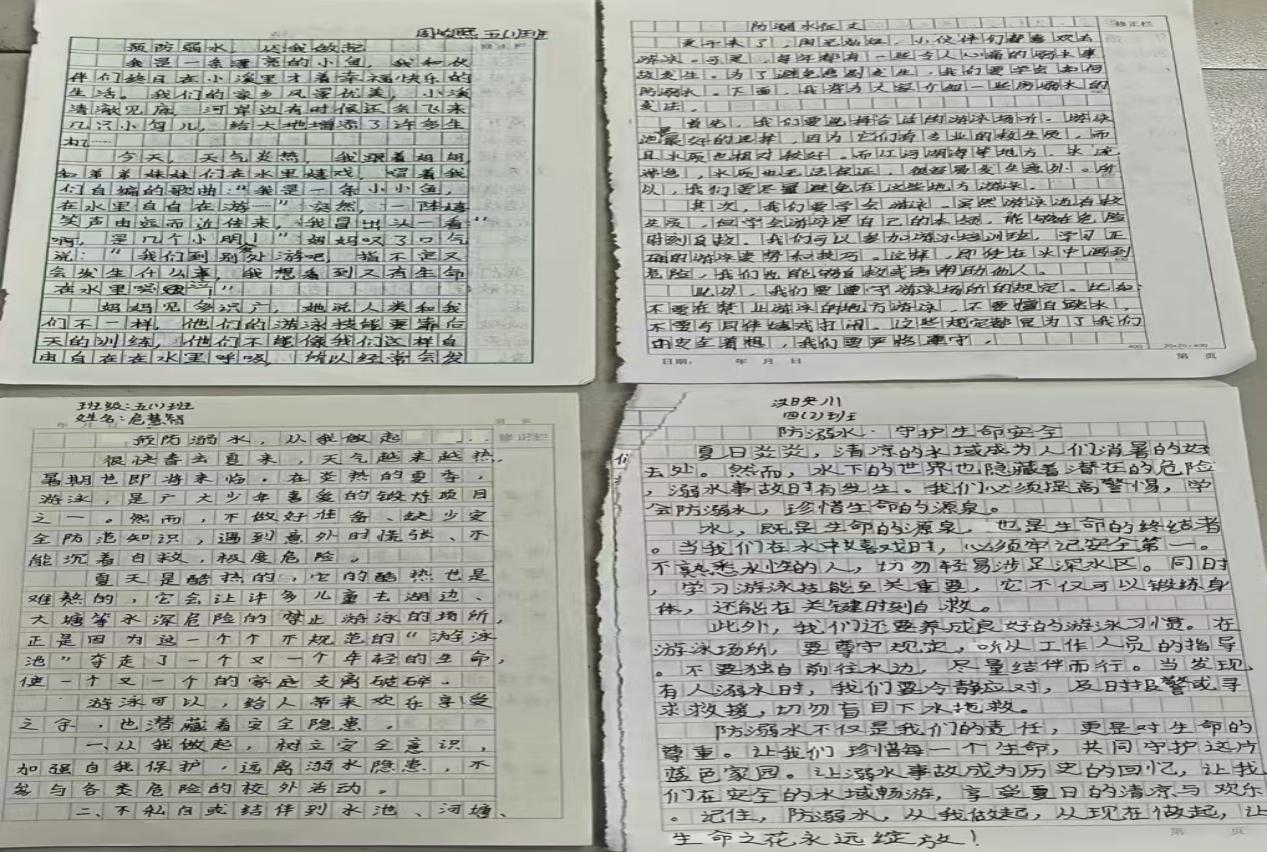 五(1)班
预防弱水,从我做起
我是一条漂亮的小鱼,我和伙
伴们终日在小溪里才着幸福快乐的
生活。我们的家乡风景优美,小溪
清澈见底,河岸边有时候还会飞来
几只小鸟儿,给大地增添了许多生
机……
今天,天气炎热,我跟着妈妈
和弟弟妹妹们在水里嬉戏,唱着我
们自编的歌曲:“我是一条小小鱼,
在水里自自在游一”突然,一阵嬉
笑声由远而近传来,我冒出头一看:“
啊,是几个小朋!”妈妈叹了口气
说:“我们到别处游吧,指不定又
会发生什么事,我想看到又有生命
在水里
妈妈见多识广,她说人类和我
们不一样,他们的游泳技能要靠后
天的训练,他们不能像我们这样自
由自在在水里呼吸,所以经常会发
防溺水征文
修正栏
夏天来了,周艺,小伙伴们都喜欢去
游泳。可是,每年都有一些令人心痛的溺水事
故发生。为了避免悲剧发生,我们要学会如何
防溺水。下面,我将为大家介绍一些防溺水的
方法。
首先,我们要选择合适的游泳场所。游泳
池是最好的选择,因为它们有专业的救生员,而
且水质也相对较好。而江河湖海等地方,水流
湍急,水质也无法保证,很容易发生意外。所
以,我们要尽量避免在这些地方游泳。
其次,我们要学会游泳。虽然游泳池有救
生员,但学会游泳是自己的本领,能够在危险
时刻自救。我们可以参加游泳培训班,学习正
确的游泳姿势和技巧。这样,即使在水中遇到
危险,我们也能够自救或者帮助他人。
此外,我们要遵守游泳场所的规定。比如:
不要在禁止游泳的地方游泳,不要擅自跳水,
不要与同伴嬉戏打闹。这些规定都是为了我们
的安全着想,我们要严格遵守。
日期: 年 月 日
400 20×20=400
第 页
班级:五(1)班
姓名:危慧智
预防溺水,从我做起
修正栏
很快春去夏来,天气越来越热,
暑期也即将来临。在炎热的夏季,
游泳,是广大少年喜爱的锻炼项目
之一。然而,不做好准备、缺少安
全防范知识,遇到意外时慌张、不
能沉着自救,极度危险。
夏天是酷热的,它的酷热也是
难熬的,它会让许多儿童去湖边、
大塘等水深危险的禁止游泳的场所,
正是因为这一个个不规范的“游泳
池”夺走了一个又一个年轻的生命,
使一个又一个的家庭支离破碎。
游泳可以,给人带来欢乐享受
之余,也潜藏着安全隐患。
一、从我做起,树立安全意识,
加强自我保护,远离溺水隐患,不
参与各类危险的校外活动。
二、不私自或结伴到水池、河塘、
四(2)班
防溺水·守护生命安全
夏日炎炎,清凉的水域成为人们消暑的好
去处。然而,水下的世界也隐藏着潜在的危险
,溺水事故时有发生。我们必须提高警惕,学
会防溺水,珍惜生命的源泉。
水,既是生命的源泉,也是生命的终结者
。当我们在水中嬉戏时,必须牢记安全第一。
不熟悉水性的人,切勿轻易涉足深水区。同时
,学习游泳技能至关重要,它不仅可以锻炼身
体,还能在关键时刻自救。
此外,我们还要养成良好的游泳习惯。在
游泳场所,要尊守规定,听从工作人员的指导
。不要独自前往水边,尽量结伴而行。当发现
有人溺水时,我们要冷静应对,及时报警或寻
求救援,切勿盲目下水施救。
防溺水不仅是我们的责任,更是对生命的
尊重。让我们珍惜每一个生命,共同守护这片
蓝色家园。让溺水事故成为历史的回忆,让我
们在安全的水域畅游,享受夏日的清凉与欢乐
。记住,防溺水,从我做起,从现在做起,让
生命之花永远绽放!
第 页